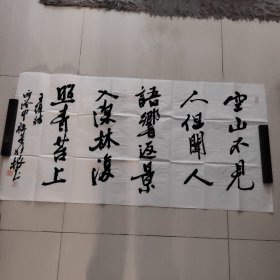 空山不見
人但聞人
語響返景
入深林復
照青苔上
王維詩